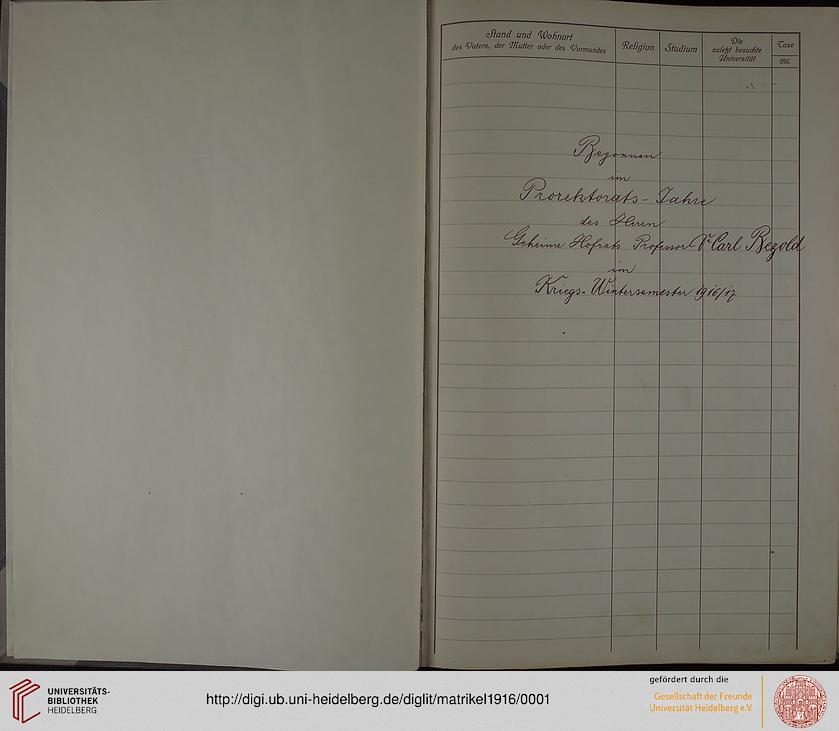 Stand und Wohnort
des Vaters, der Mutter oder des Vormundes
Religion
Studium
Die
zuletzt besuchte
Universität
Taxe
Mk.
Begonnen
im
Prorektorats-Jahre
des Herrn
Geheime Hofrats Professor Dr Carl Bezold
im
Kriegs-Wintersemester 1916/17
UNIVERSITÄTS-
BIBLIOTHEK
HEIDELBERG
http://digi.ub.uni-heidelberg.de/diglit/matrikel1916/0001
gefördert durch die
Gesellschaft der Freunde
Universität Heidelberg e.V.